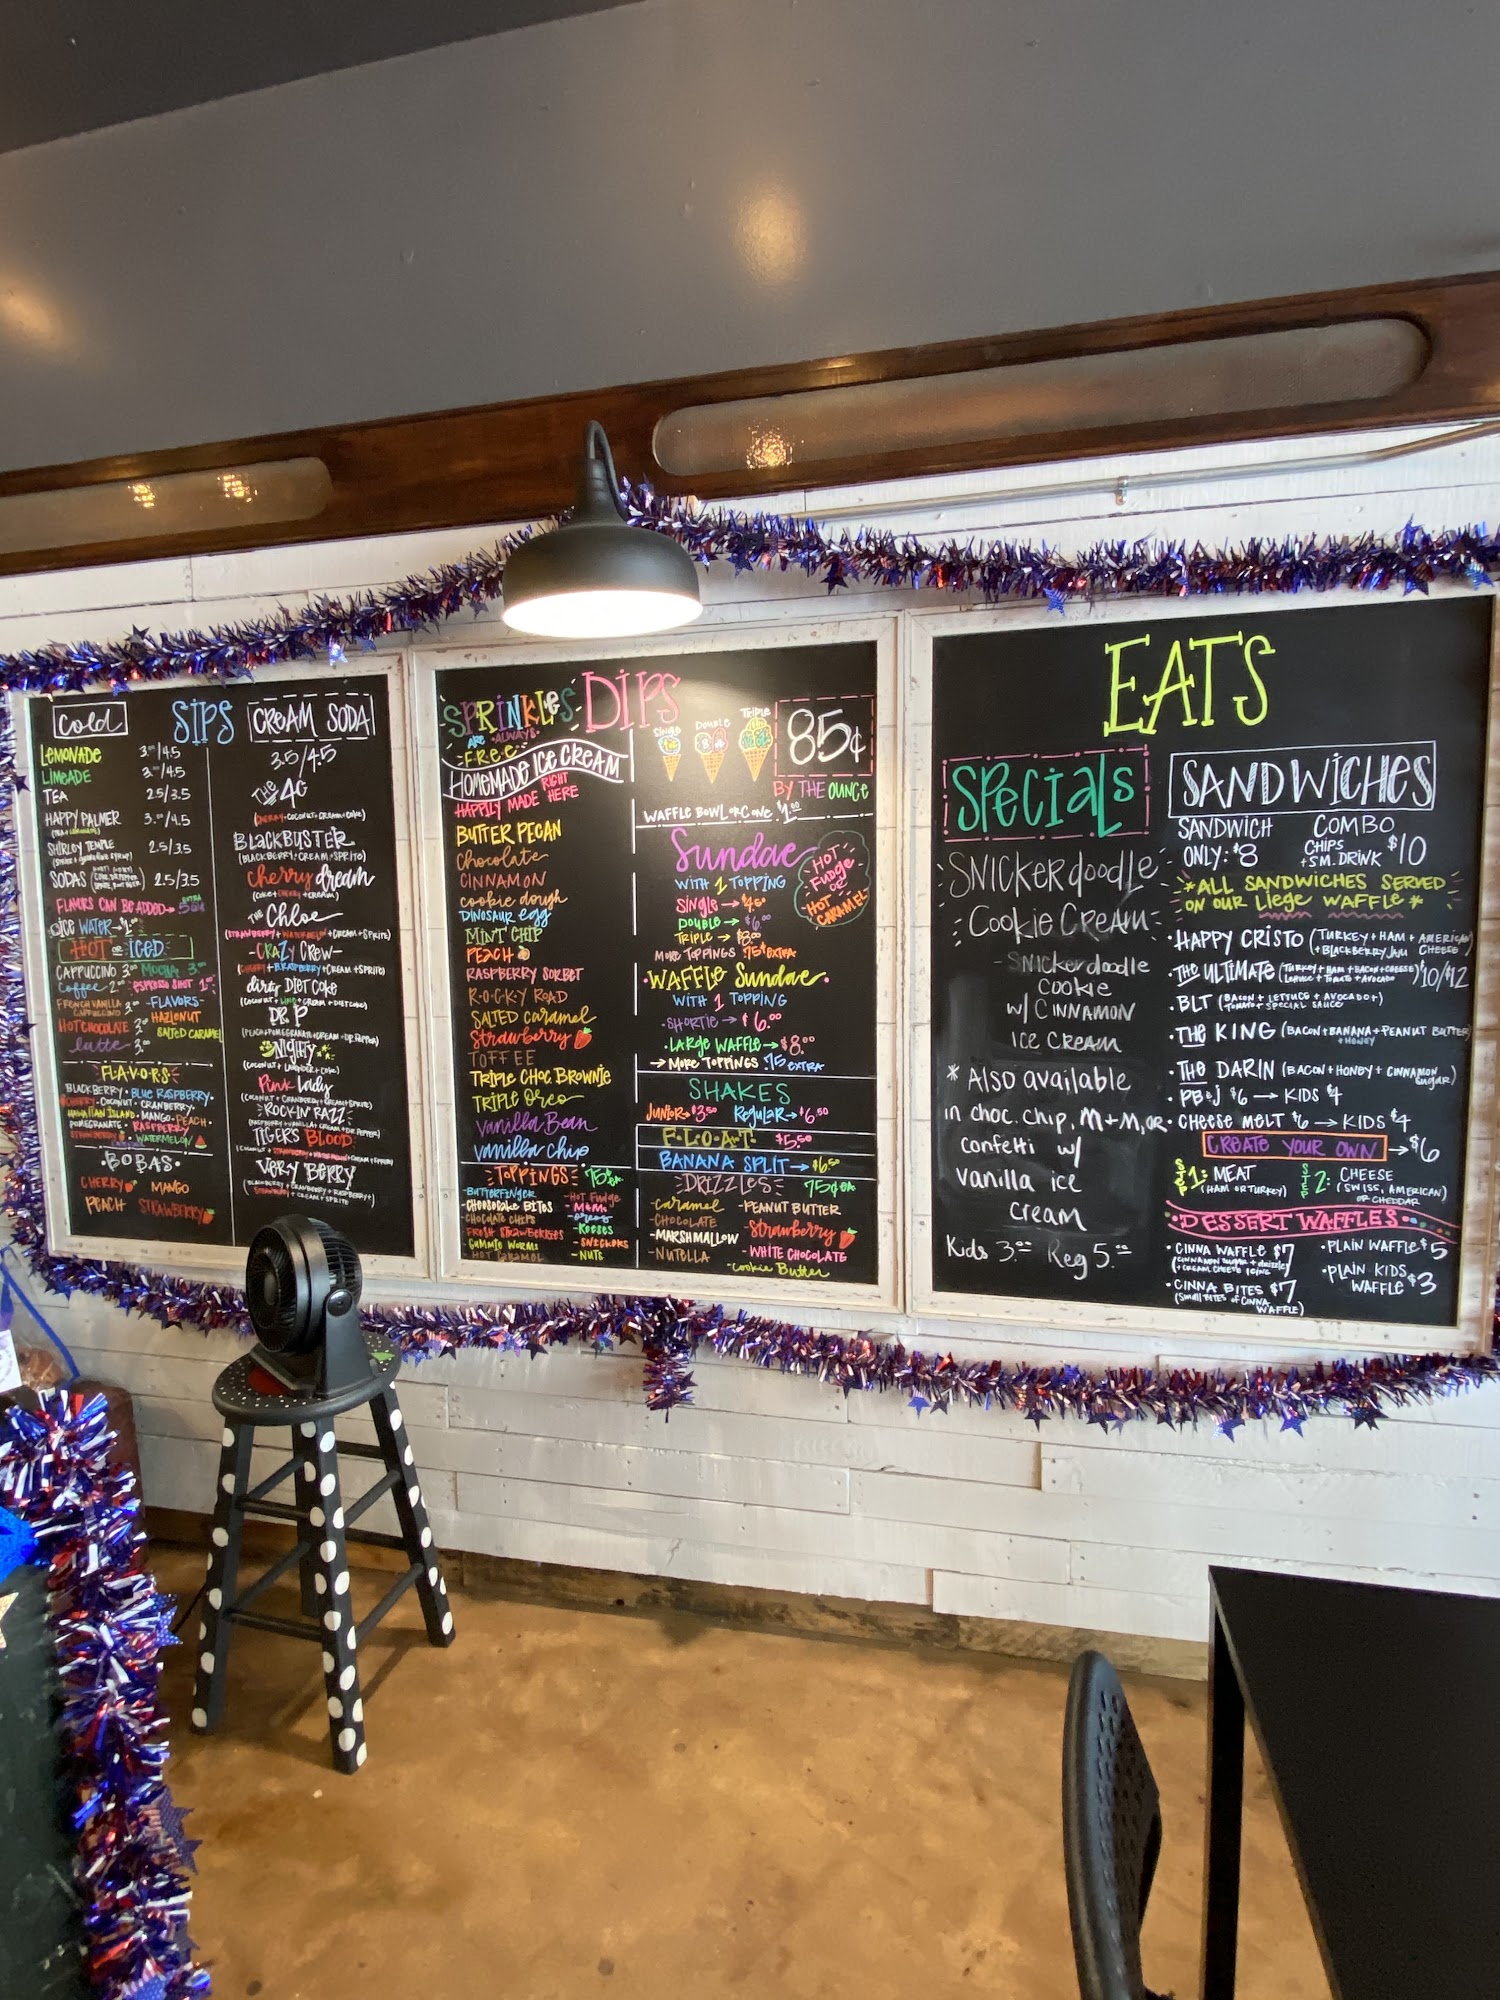 Cold
SIPS
LEMONADE 3.00/4.5
LIMEADE 3.00/4.5
TEA 2.5/3.5
HAPPY PALMER 3.00/4.5
(TEA + LEMONADE)
SHIRLEY TEMPLE 2.5/3.5
SODAS 2.5/3.5
FLAVORS CAN BE ADDED → EXTRA 50¢
ICE WATER → $1.00
HOT or ICED
CAPPUCCINO 3.00 MOCHA 3.00
Coffee 2.00 ESPRESSO SHOT
FRENCH VANILLA CAPPUCCINO 3.00
-FLAVORS-
HAZLENUT
HOT CHOCOLATE 3.00 SALTED CARAMEL
latte 3.00
FLAVORS
BLACKBERRY • BLUE RASPBERRY •
CHERRY • COCONUT • CRANBERRY •
HAWAIIAN ISLAND • MANGO • PEACH •
POMEGRANATE • RASPBERRY
WATERMELON
• BOBAS •
CHERRY MANGO
PEACH STRAWBERRY
CREAM SODA
3.5/4.5
THE 4C
(CHERRY + COCONUT + CREAM + COKE)
BLACKBUSTER
(BLACKBERRY + CREAM + SPRITE)
Cherry dream
(COKE + CHERRY + CREAM)
THE Chloe
(STRAWBERRY + WATERMELON + CREAM + SPRITE)
-CRAZY CREW-
(CHERRY + B.RASPBERRY + CREAM + SPRITE)
dirty DIET COKE
(COCONUT + LIME + CREAM + DIET COKE)
DR. P
(PEACH + POMEGRANATE + CREAM + DR. PEPPER)
NIGHTY
(COCONUT + LAVENDER + COKE)
Pink lady
ROCKIN' RAZZ
(RASPBERRY + VANILLA + CREAM + DR. PEPPER)
TIGER'S BLOOD
VERY BERRY
(BLACKBERRY + CRANBERRY + RASPBERRY +
STRAWBERRY + CREAM + SPRITE
SPRINKLES
ARE ALWAYS
FREE
DIPS
HOMEMADE ICE CREAM
HAPPILY MADE RIGHT HERE
BUTTER PECAN
Chocolate
CINNAMON
cookie dough
DINOSAUR egg
MINT CHIP
PEACH
RASPBERRY SORBET
ROCKY ROAD
SALTED caramel
Strawberry
TOFFEE
TRIPLE CHOC BROWNIE
TRIPLE Oreo
Vanilla Bean
vanilla chip
TOPPINGS 75¢ea
• BUTTERFINGER
• CHEESECAKE BITES
• CHOCOLATE CHIPS
• FRESH STRAWBERRIES
• GUMMIE WORMS
• HOT CARAMEL
• HOT FUDGE
• M&M
• OREOS
• REESES
• SNICKERS
• NUTS
SINGLE DOUBLE TRIPLE
85¢
BY THE OUNCE
WAFFLE BOWL OR CONE $1.00
Sundae
HOT
FUDGE
OR
HOT
CARAMEL
WITH 1 TOPPING
SINGLE →
DOUBLE → $6.00
TRIPLE →
MORE TOPPINGS 75¢ EXTRA
• WAFFLE Sundae •
WITH 1 TOPPING
• SHORTIE → $6.00
• LARGE WAFFLE → $8.00
→ MORE TOPPINGS .75 EXTRA
SHAKES
JUNIOR → $3.50 REGULAR → $6.50
FLOAT! $5.50
BANANA SPLIT → $6.50
DRIZZLES 75¢ea
-Caramel
-CHOCOLATE
-MARSHMALLOW
-NUTELLA
-PEANUT BUTTER
-Strawberry
-WHITE CHOCOLATE
-Cookie Butter
EATS
Specials
SNICKERdoodle
Cookie Cream
- SNICKerdoodle
cookie
w/ CINNAMON
ICE CREAM
* Also available
in choc. chip, M+M, OR
confetti w/
vanilla ice
cream
Kids 3.00 Reg 5.00
SANDWICHES
SANDWICH
ONLY: $8
COMBO
CHIPS
+ SM. DRINK $10
*ALL SANDWICHES SERVED
ON OUR Liege WAFFLE *
• HAPPY CRISTO (TURKEY + HAM + AMERICAN CHEESE
+ BLACKBERRY JAM)
• THE ULTIMATE (TURKEY + HAM + BACON + CHEESE
LETTUCE + TOMATO + AVOCADO) $10/$12
• BLT (BACON + LETTUCE + AVOCADO +
TOMATO + SPECIAL SAUCE)
• THE KING (BACON + BANANA + PEANUT BUTTER
+ HONEY)
• THE DARIN (BACON + HONEY + CINNAMON
sugar)
• PB&J $6 → KIDS $4
• CHEESE MELT $6 → KIDS $4
CREATE YOUR OWN → $6
STEP 1: MEAT
(HAM OR TURKEY)
STEP 2: CHEESE
(SWISS, AMERICAN)
OR CHEDDAR
• DESSERT WAFFLES •
• CINNA WAFFLE $7
(CINNAMON SUGAR + drizzle
+ CREAM CHEESE ICING)
• CINNA BITES $7
(SMALL BITES OF CINNA
WAFFLE)
• PLAIN WAFFLE $5
• PLAIN KIDS
WAFFLE $3